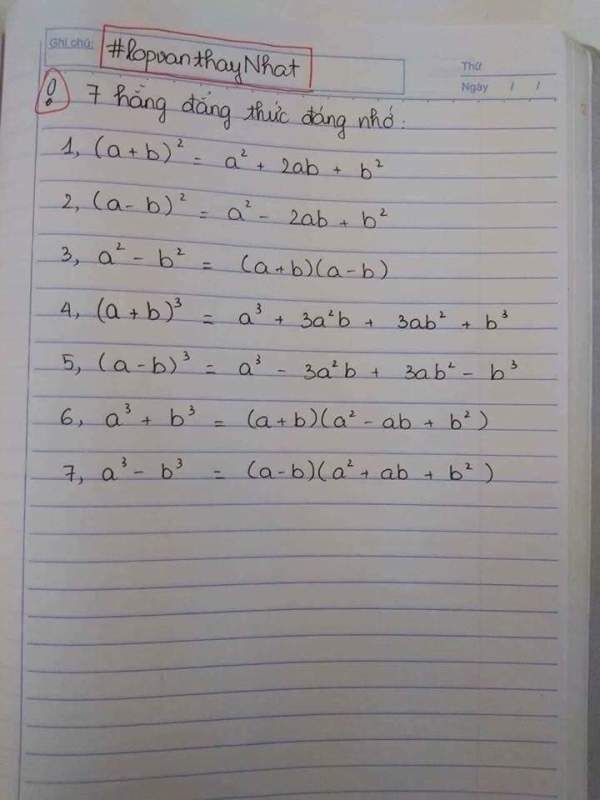 Ghi chú: #lopvanthayNhat
Thứ
Ngày / /
! 7 hằng đẳng thức đáng nhớ:
1, (a + b)² = a² + 2ab + b²
2, (a - b)² = a² - 2ab + b²
3, a² - b² = (a+b)(a-b)
4, (a + b)³ = a³ + 3a²b + 3ab² + b³
5, (a - b)³ = a³ - 3a²b + 3ab² - b³
6, a³ + b³ = (a+b)(a² - ab + b²)
7, a³ - b³ = (a-b)(a² + ab + b²)